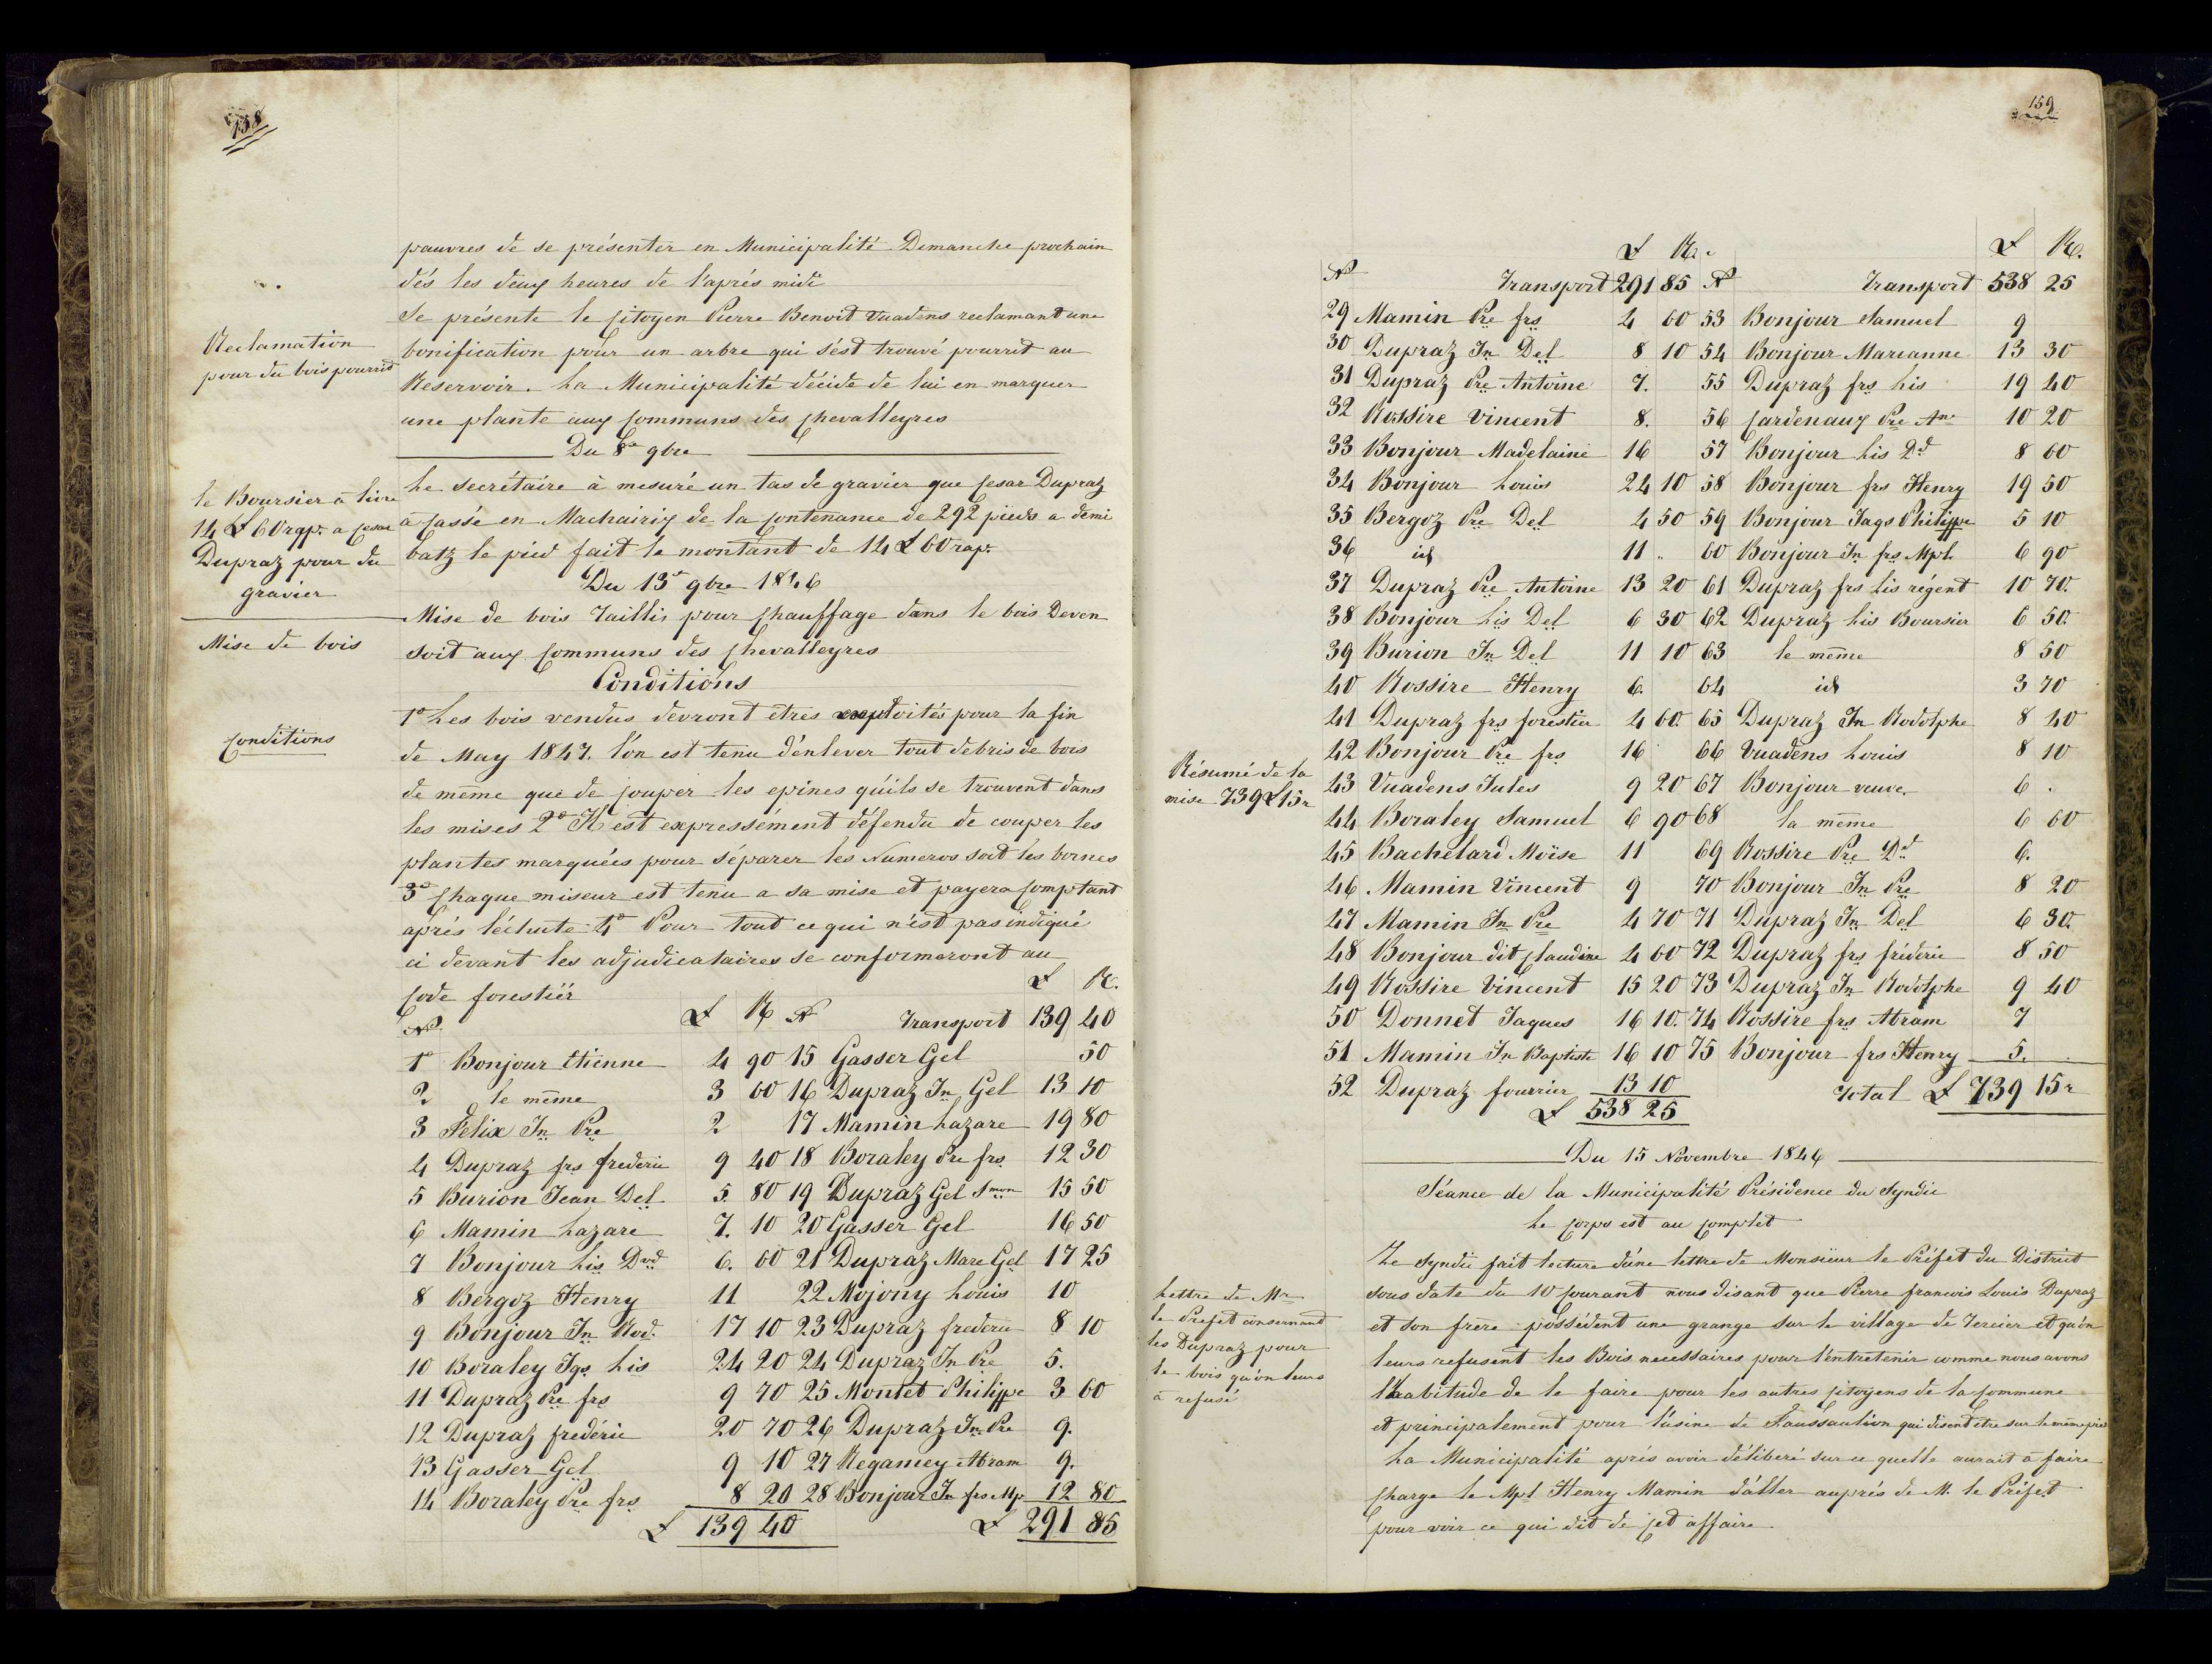 158
pauvres de se présenter en Municipalité Demanche prochain
dés les deux heures de l'aprés midi
Se présente le citoyen Pierre Benoit Vuadens reclamant une
Reclamation
pour du bois pourrid
bonification pour un arbre qui s'ést trouvé pourrit au
Reservoir. La Municipalité décide de lui en marquer
une plante aux communs des chevalleyres
Du 8e 9bre
le Boursier à livre
14 £ 60 rap. a Cesar
Dupraz pour du
gravier
Le secrétaire à mesuré un tas de gravier que Cesar Dupraz
à cassé en Machairix de la contenance de 292 pieds a demi
batz le pied fait le montant de 14 £ 60 rap.
Du 13e 9bre 1846
Mise de bois
Mise de bois Taillis pour chauffage dans le bois Deven
soit aux communs des chevalleyres
Conditions
Conditions
1o Les bois vendus devront êtres exploités pour la fin
de May 1847. l'on est tenu d'énlever tout debris de bois
de même que de couper les epines qu'ils se trouvent dans
les mises 2o Il est expressément défendu de couper les
plantes marquées pour séparer les Numeros soit les bornes
3o Chaque miseur est tenu a sa mise et payera comptant
aprés l'échute 4o Pour tout ce qui n'ést pas indiqué
ci devant les adjudicataires se conformeront au
Code forestiér
No £ R No Transport £ 139 R. 40
1o Bonjour Etienne 4 90 15 Gasser Gel 50
2 le même 3 60 16 Dupraz Jn Gel 13 10
3 Felix Jn Pre 2 17 Mamin Lazare 19 80
4 Dupraz frs frederic 9 40 18 Boraley Pre frs 12 30
5 Burion Jean Del 5. 80 19 Dupraz Gel Smon 15 50
6 Mamin Lazare 7. 10 20 Gasser Gel 16 50
7 Bonjour Lis Dvd 6. 60 21 Dupraz Marc Gel 17 25
8 Bergoz Henry 11 22 Mojony Louis 10
9 Bonjour Jn Rod. 17 10 23 Dupraz frederic 8 10
10 Boraley Jqs Lis 24 20 24 Dupraz Jn Pre 5.
11 Dupraz Pre frs 9 70 25 Monnet Philippe 3 60
12 Dupraz fredéric 20 70 26 Dupraz Jn Pre 9.
13 Gasser Gel 9 10 27 Regamey Abram 9.
14 Boraley Pre frs 8 20 28 Bonjour Jn frs Mp 12 80
£ 139 40 £ 291 85
159
£ R. £ R.
No Transport 291 85 No Transport 538 25
29 Mamin Pre frs 4 60 53 Bonjour Samuel 9
30 Dupraz Jn Del 8 10 54 Bonjour Marianne 13 30
31 Dupraz Pre Antoine 7. 55 Dupraz frs Lis 19 40
32 Rossire Vincent 8. 56 Cardenaux Pre Ane 10 20
33 Bonjour Madelaine 16 57 Bonjour Lis Dd 8 60
34 Bonjour Louis 24 10 58 Bonjour frs Henry 19 50
35 Bergoz Pre Del 4 50 59 Bonjour Jaqs Philippe 5 10
36 id 11 .. 60 Bonjour Jn frs Mpl. 6 90
37 Dupraz Pre Antoine 13 20 61 Dupraz frs Lis régent 10 70.
38 Bonjour Lis Del 6 30 62 Dupraz Lis Boursier 6 50.
39 Burion Jn Del 11 10 63 le même 8 50
40 Rossire Henry 6. 64 id 3 70
41 Dupraz frs forestier 4 60. 65 Dupraz Jn Rodolphe 8 40
42 Bonjour Pre frs 16 66 Vuadens Louis 8 10
Résumé de la
mise 739 £ 15 r
43 Vuadens Jules 9 20 67 Bonjour veuve. 6 .
44 Boraley Samuel 6 90 68 la même 6 60
45 Bachelard Moïse 11 69 Rossire Pre Dd 6.
46 Mamin Vincent 9 70 Bonjour Jn Pre 8 20
47 Mamin Jn Pre 4 70 71 Dupraz Jn Del 6 30.
48 Bonjour dit Claudine 4 60 72 Dupraz frs fréderic 8 50
49 Rossire Vincent 15 20 73 Dupraz Jn Rodolphe 9 40
50 Donnet Jaques 16 10. 74 Rossire frs Abram 7
51 Mamin Jn Baptiste 16 10 75 Bonjour frs Henry 5.
52 Dupraz fourrier 13 10 Total £ 739 15 r
£ 538 25
Du 15 Novembre 1846
Séance de la Municipalité Présidence du Syndic
Le corps est au complet
Lettre de Mr
le Prefet consernant
les Dupraz pour
le bois qu'on leurs
à refusé
Le Syndic fait lecture d'une lettre de Monsieur le Préfet du District
sous date du 10 courant nous disant que Pierre francois Louis Dupraz
et son frere possédent une grange sur le village de Tercier et qu'on
leurs refusent les Bois necessaires pour l'entretenir comme nous avons
l'habitude de le faire pour les autres citoyens de la commune
et principalement pour l'usine de Faussaulion qui disent etre sur le même pied
La Municipalité aprés avoir déliberé sur ce quelle aurait à faire
charge le Mpl Henry Mamin d'aller auprés de M. le Préfet
pour voir ce qui dit de cet affaire.